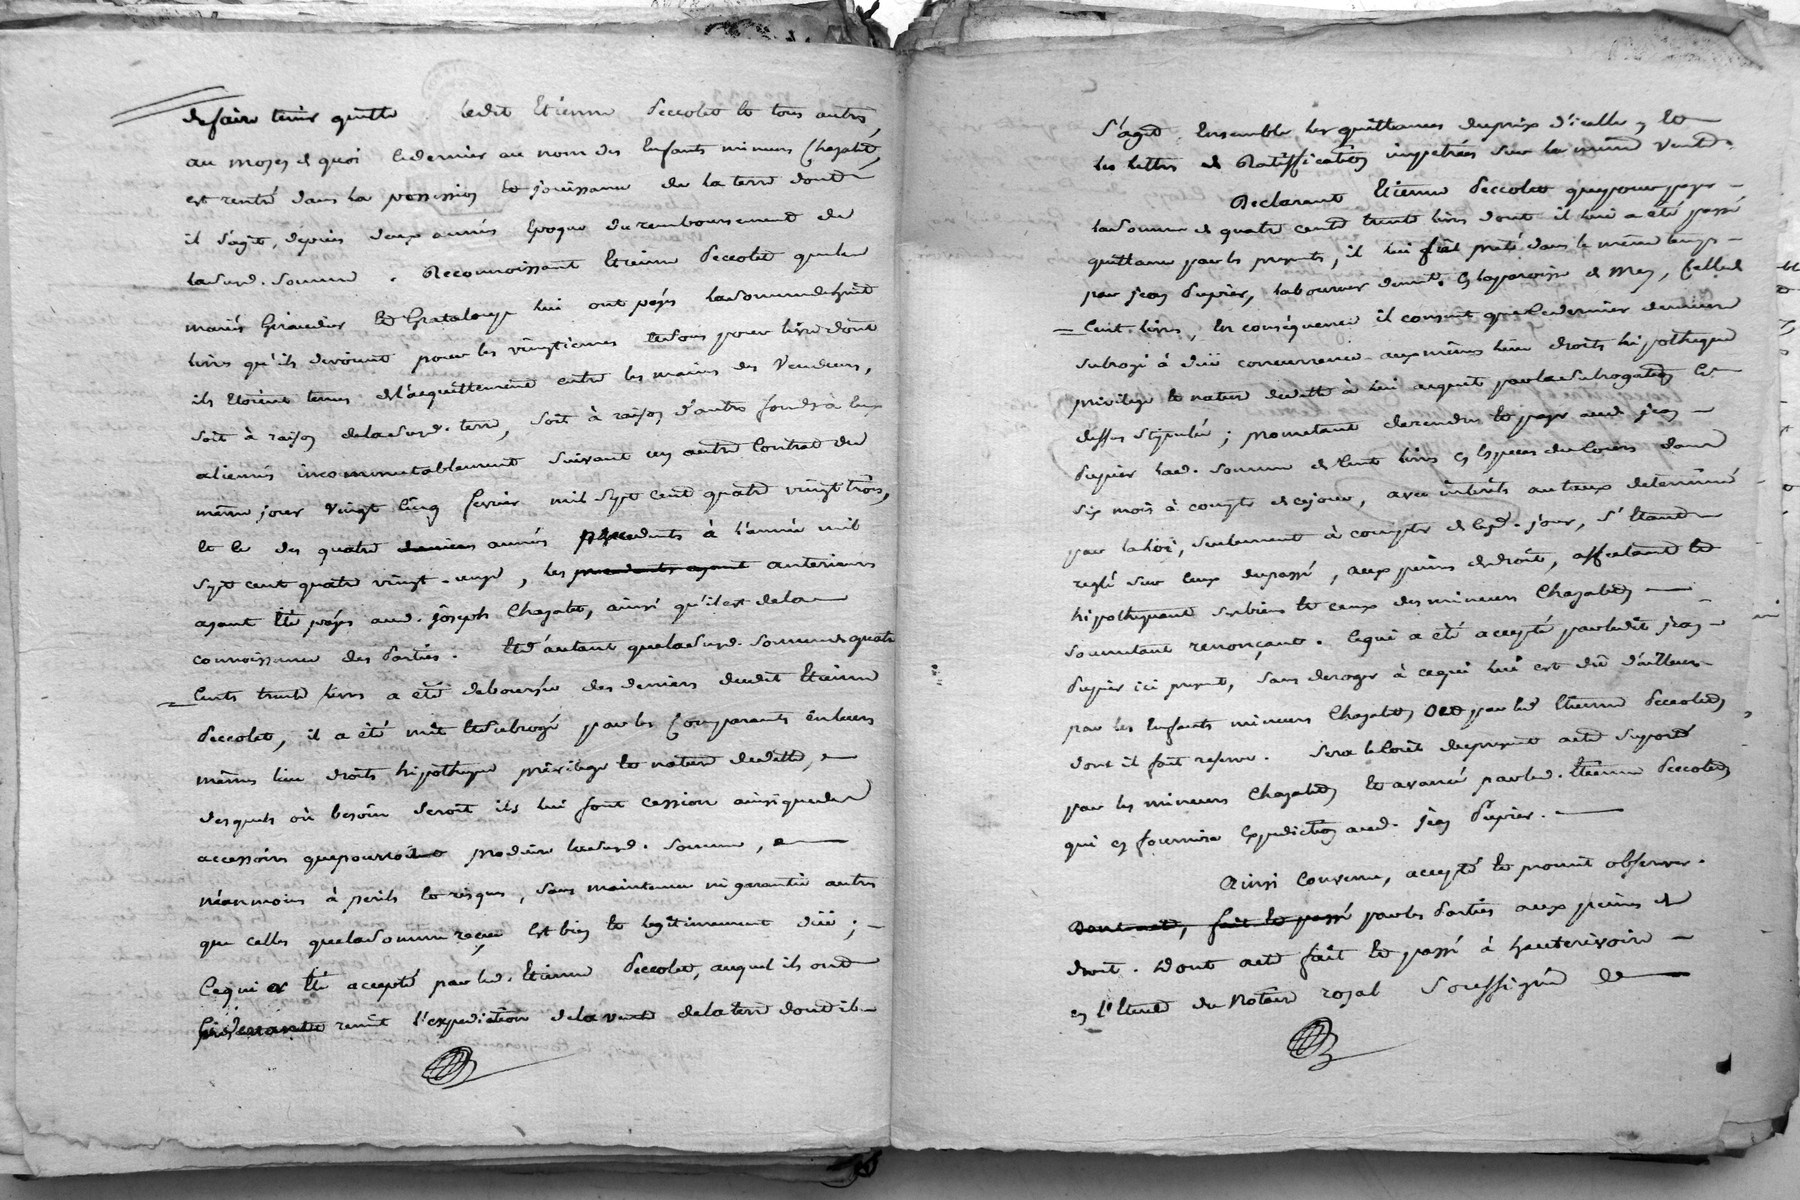 de faire tenir quitte ledit Etienne Peccolet et tous autres,
au moyen de quoi ce dernier au nom des Enfants mineurs Chazalet,
est rentré dans la possession et jouissance de la terre dont
il s'agit, depuis deux années Epoque du remboursement de
la susd. somme. Reconnoissant Etienne Peccolet que les
mariés Giraudier et Grataloup lui ont payé la somme de huit
livres qu'ils devoient pour les vingtiemes et sous pour livre dont
ils étoient tenus de l'acquittement entre les mains des Vendeurs,
soit à raison de la susd. terre, soit à raison d'autres fonds à eux
aliénés incommutablement suivant un autre Contrat du
même jour vingt cinq fevrier mil sept cent quatre vingt trois,
et ce des quatre années précedents à l'année mil
sept cent quatre vingt-onze, les precedents ayant anterieurs
ayant été payés aud. joseph Chazalet, ainsi qu'il est de la
connoissance des Parties. Et d'autant que la susd. somme de quatre
Cents trente livres a été deboursée des deniers dudit Etienne
Peccolet, il a été mis et subrogé par les Comparants en leurs
mêmes lieu droits hipotheque privilege et nature de dette,
desquels où besoin seroit ils lui font cession ainsi que des
accessoires que pourroit produire la susd. somme,
néanmoins à perils et risques, sans maintenue ni garantie autres
que celles que la somme reçue Est bien et legitimement düe;
Ce qui a été accepté par led. Etienne Peccolet, auquel ils ont
remit l'expedition de la vente de la terre dont il
s'agit. Ensemble les quittances du prix d'icelle, et
les lettres de Ratiffication impetrées sur la même vente.
Declarant Etienne Peccolet que pour payer
la somme de quatre cents trente livres dont il lui a été passé
quittance par les presents, il lui fut preté dans le même temps
par jean Pupier, laboureur demt. en la paroisse de Mey, Celle de
Cent livres, En conséquence il consent que ce dernier demeure
subrogé à düe concurrence aux mêmes lieu droits hipotheque
privilege et nature de dette à lui acquit par la subrogation Ci-
dessus stipulée; promettant de rendre et payer aud. jean
Pupier lad. somme de Cent livres en Espèces de Cours dans
six mois à compter de ce jour, avec intérêts au taux determiné
par la loi, seulement à compter de lad. jour, s'étant
reglé sur ceux du passé, aux peines de droit, affectant et
hipothequant ses biens et ceux des mineurs Chazalet
soumettant renonçant. Ce qui a été accepté par ledit jean
Pupier ici present, sans deroger à ce qui lui est dû d'ailleurs
par les Enfants mineurs Chazalet et par led. Etienne Peccolet,
dont il fait reserve. Sera le Coût du present acte suporté
par les mineurs Chazalet et avancé par led. Etienne Peccolet,
qui en fournira Expedition aud. jean Pupier.
Ainsi Convenu, accepté et promit observer.
Dont acte, fait et passé par les Parties aux peines de
droit. Dont acte fait et passé à hauterivoire
en l'Etude du Notaire royal Soussigné Le